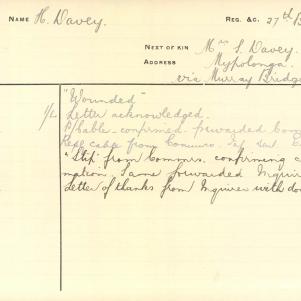 NAME H. Davey. REG. &C. 27th B
NEXT OF KIN Mrs S. Davey.
ADDRESS Mypolonga.
via Murray Bridge
"Wounded"
Letter acknowledged.
cable confirmed forwarded
Repl cable from Commrs.
"Slip" from Commrs. confirming c
mation. Same forwarded Inquir
Letter of thanks from Inquirer with do